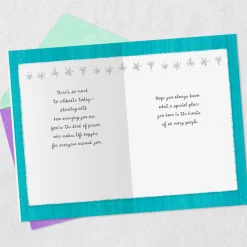 There's so much
to celebrate today—
starting with
how amazing you are.
You're the kind of person
who makes life happier
for everyone around you.
Hope you always know
what a special place
you have in the hearts
of so many people.